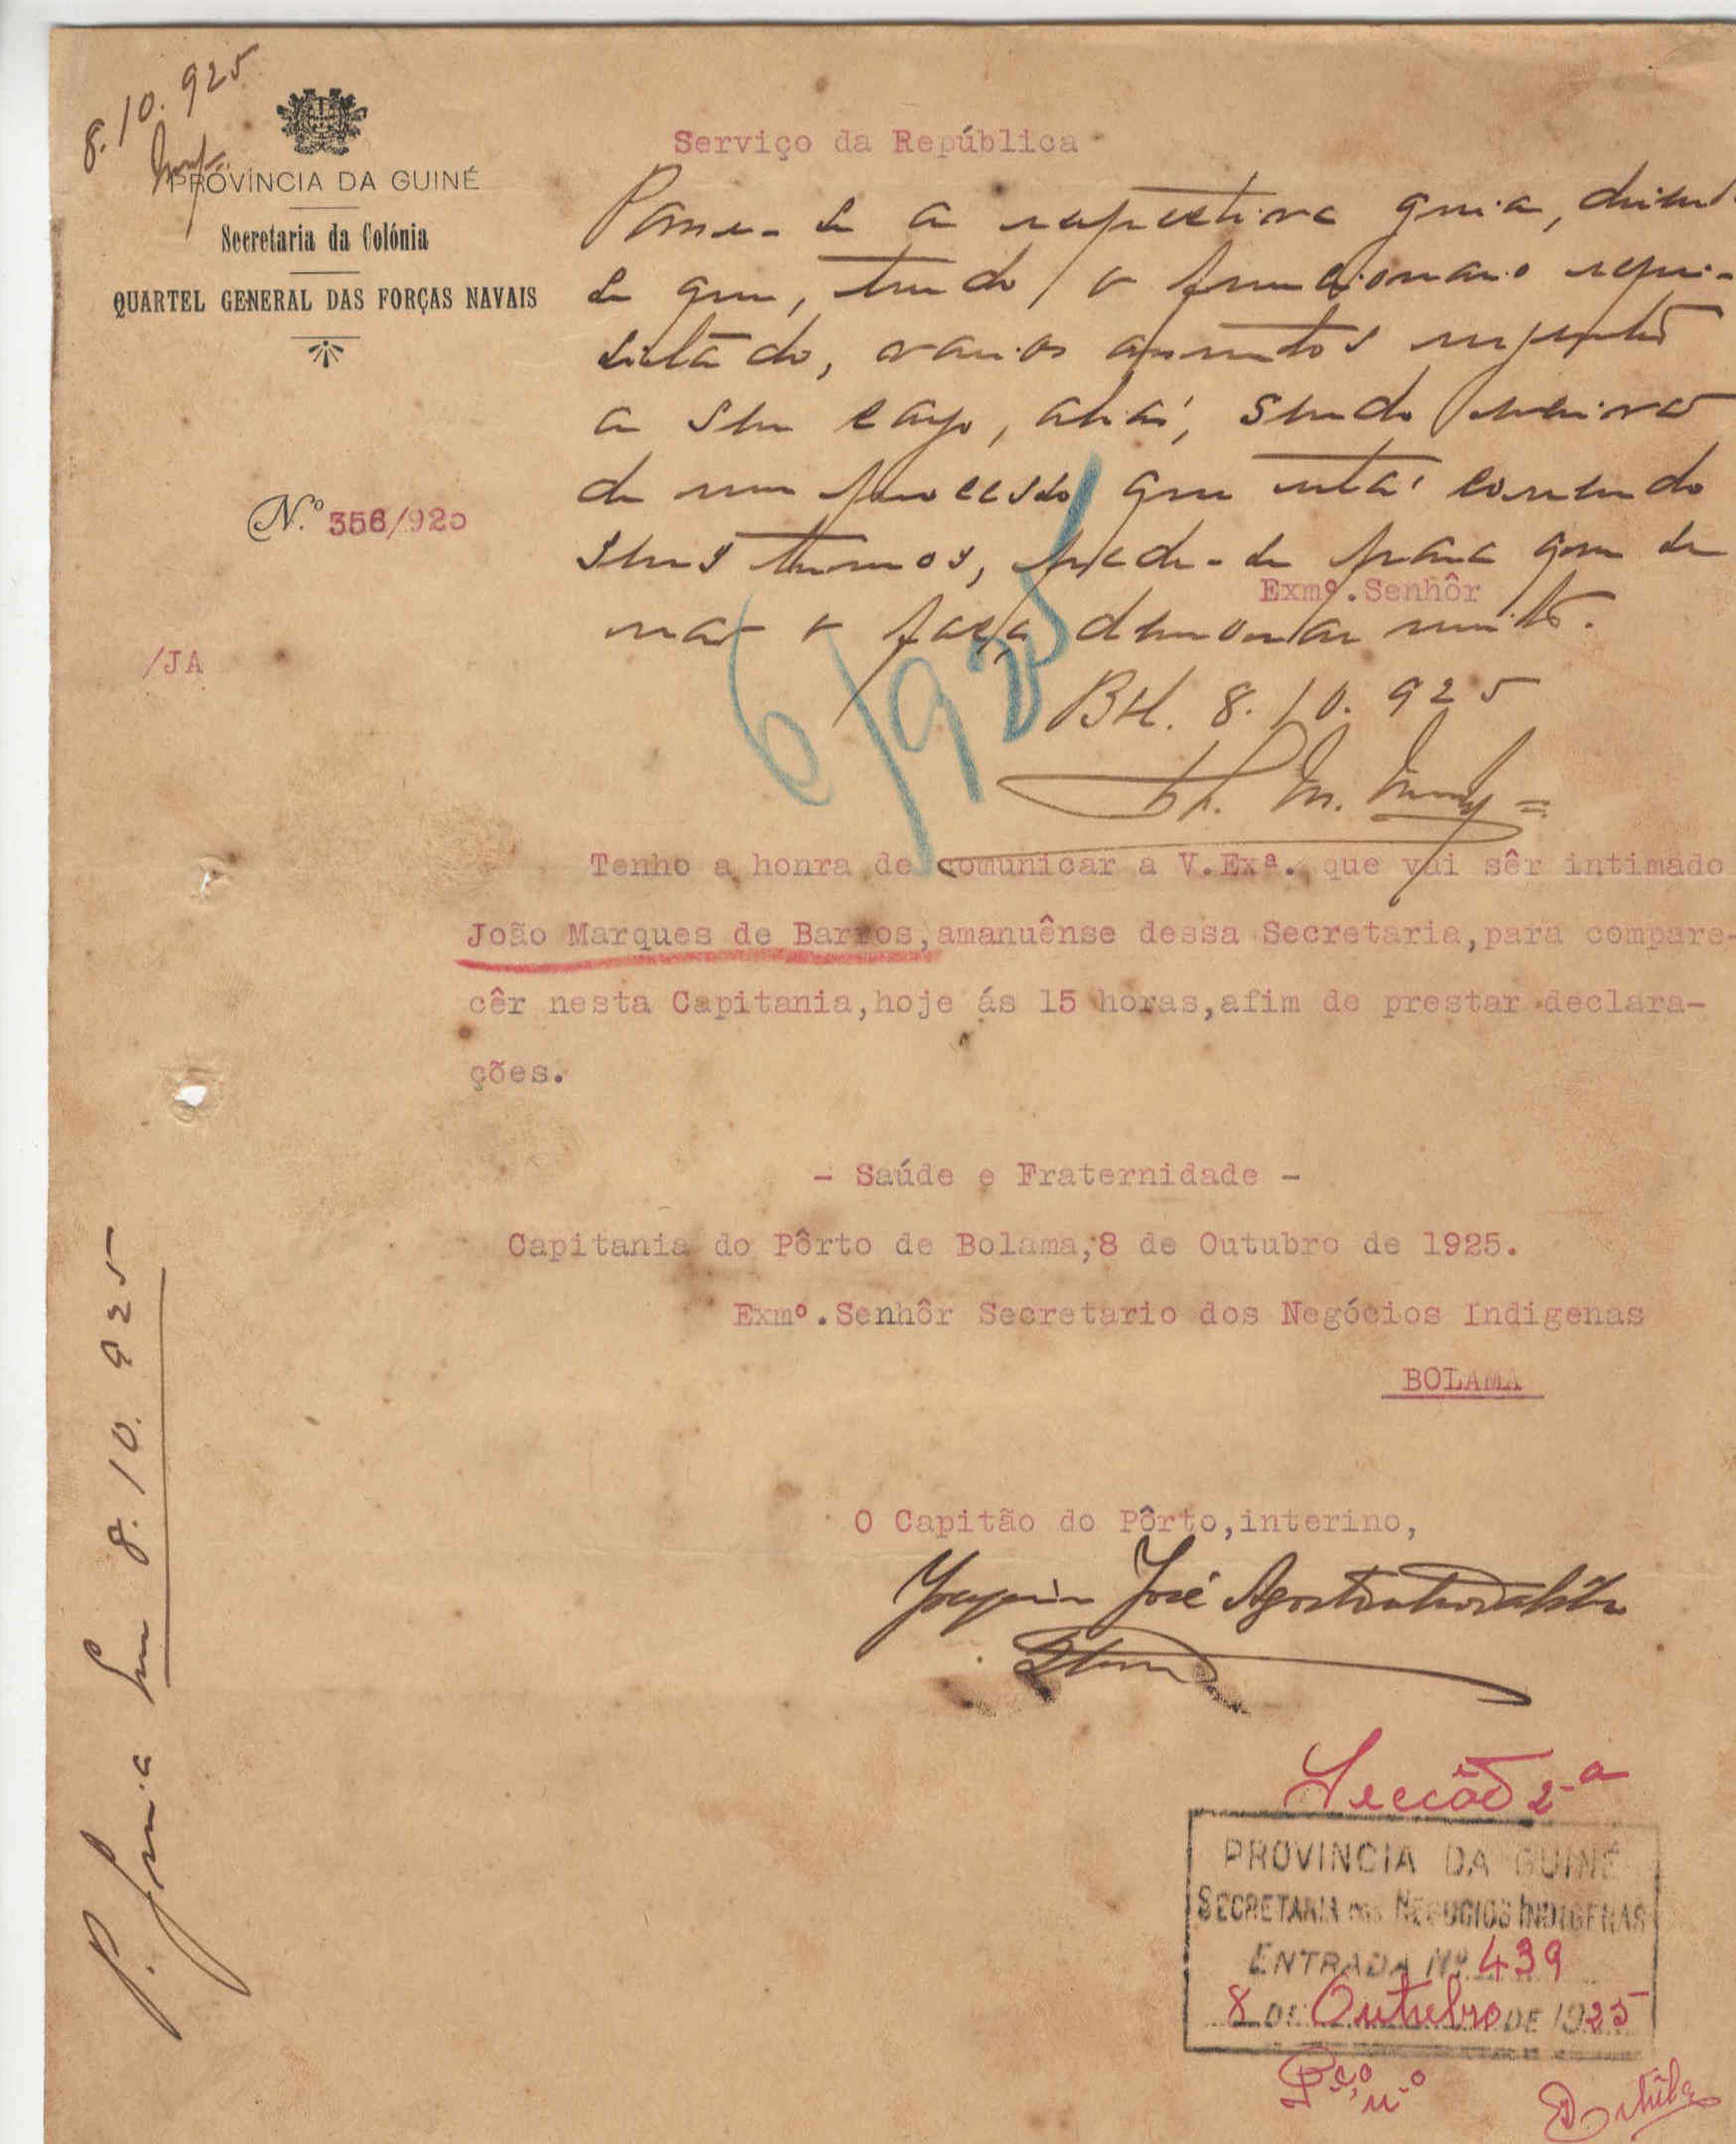 8.10.925
PROVÍNCIA DA GUINÉ
Secretaria da Colónia
QUARTEL GENERAL DAS FORÇAS NAVAIS
N.º 356/925
/JA
Serviço da República
Passe-se a respectiva guia, dizendo-
se que, tendo o funcionario requi-
sitado, varios assuntos urgentes
a seu cargo, aliás, sendo escrivão
de um processo que está correndo
seus termos, pede-se para que se
não o faça demorar muito.
Exmº. Senhôr
8.10.925
6/925
Tenho a honra de comunicar a V.Exª. que vai sêr intimado
João Marques de Barros, amanuênse dessa Secretaria, para compare-
cêr nesta Capitania, hoje ás 15 horas, afim de prestar declara-
ções.
- Saúde e Fraternidade -
Capitania do Pôrto de Bolama, 8 de Outubro de 1925.
Exmº. Senhôr Secretario dos Negócios Indigenas
BOLAMA
O Capitão do Pôrto, interino,
José
P. guia em 8.10.925
Secção 2ª
PROVINCIA DA GUINÉ
SECRETARIA DOS NEGOCIOS INDIGENAS
ENTRADA Nº 439
8 DE Outubro DE 1925
P.ço n.º